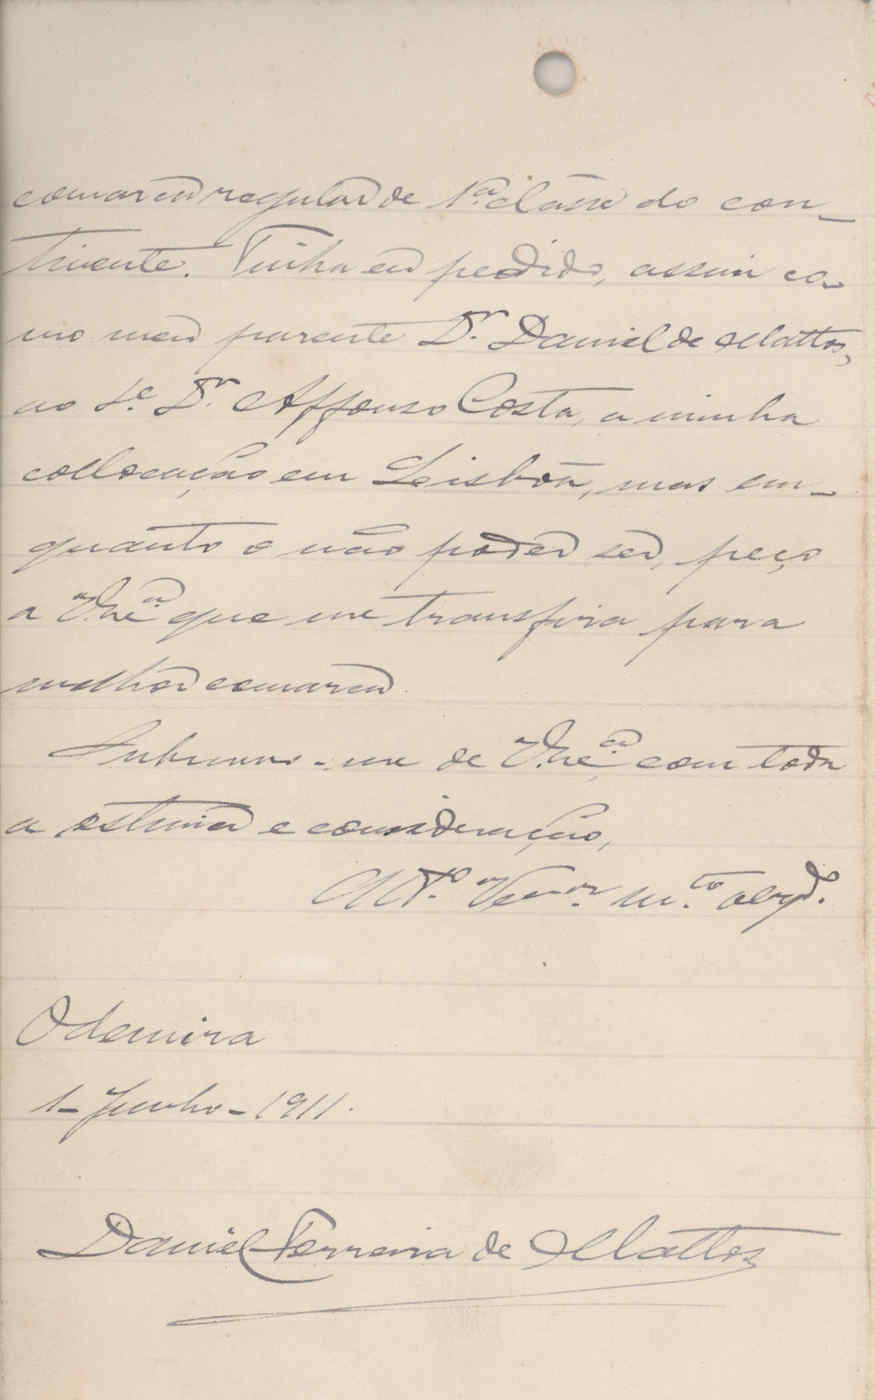 comarca regular de 1.ª classe do con-
tinente. Tinha eu pedido, assim co-
mo meu parente Dr. Daniel de Mattos,
ao Sr. Dr. Affonso Costa, a minha
collocação em Lisbôa, mas em-
quanto o não poder ser, peço
a V. Ex.ª que me transfira para
melhor comarca.
Subscrevo-me de V. Ex.ª com toda
a estima e consideração,
At.º Ven.or m.to obgd.º
Odemira
1-Junho-1911.
Daniel Ferreira de Mattos